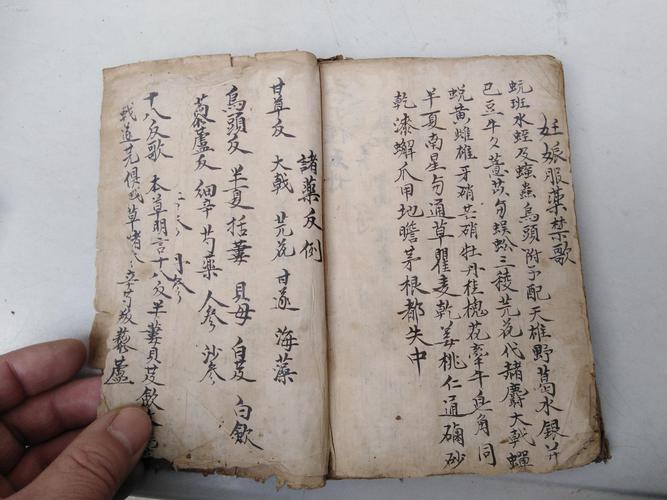 妊娠服藥禁歌
蚖班水蛭及蝱蟲烏頭附子配天雄野葛水銀并
巴豆牛夕薏苡勻蜈蚣三稜芫花代赭麝大戟蟬
蛻黃雌雄牙硝芒硝牡丹桂槐花牽牛皂角同
半夏南星勻通草瞿麦乾姜桃仁通硇砂
乾漆蠏爪甲地瞻茅根都失中
諸藥反例
甘草反 大戟 芫花 甘遂 海藻
烏頭反 半夏 括蔞 貝母 白芨 白歛
藜蘆反 細辛 芍藥 人參 沙參
丹參
十八反歌 本草明言十八反半蔞貝芨歛
戟遂芫俱戰草諸參辛芍反藜蘆